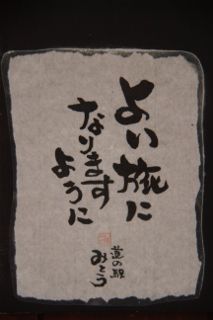 よい旅に
なります
ように
道の駅
みとう